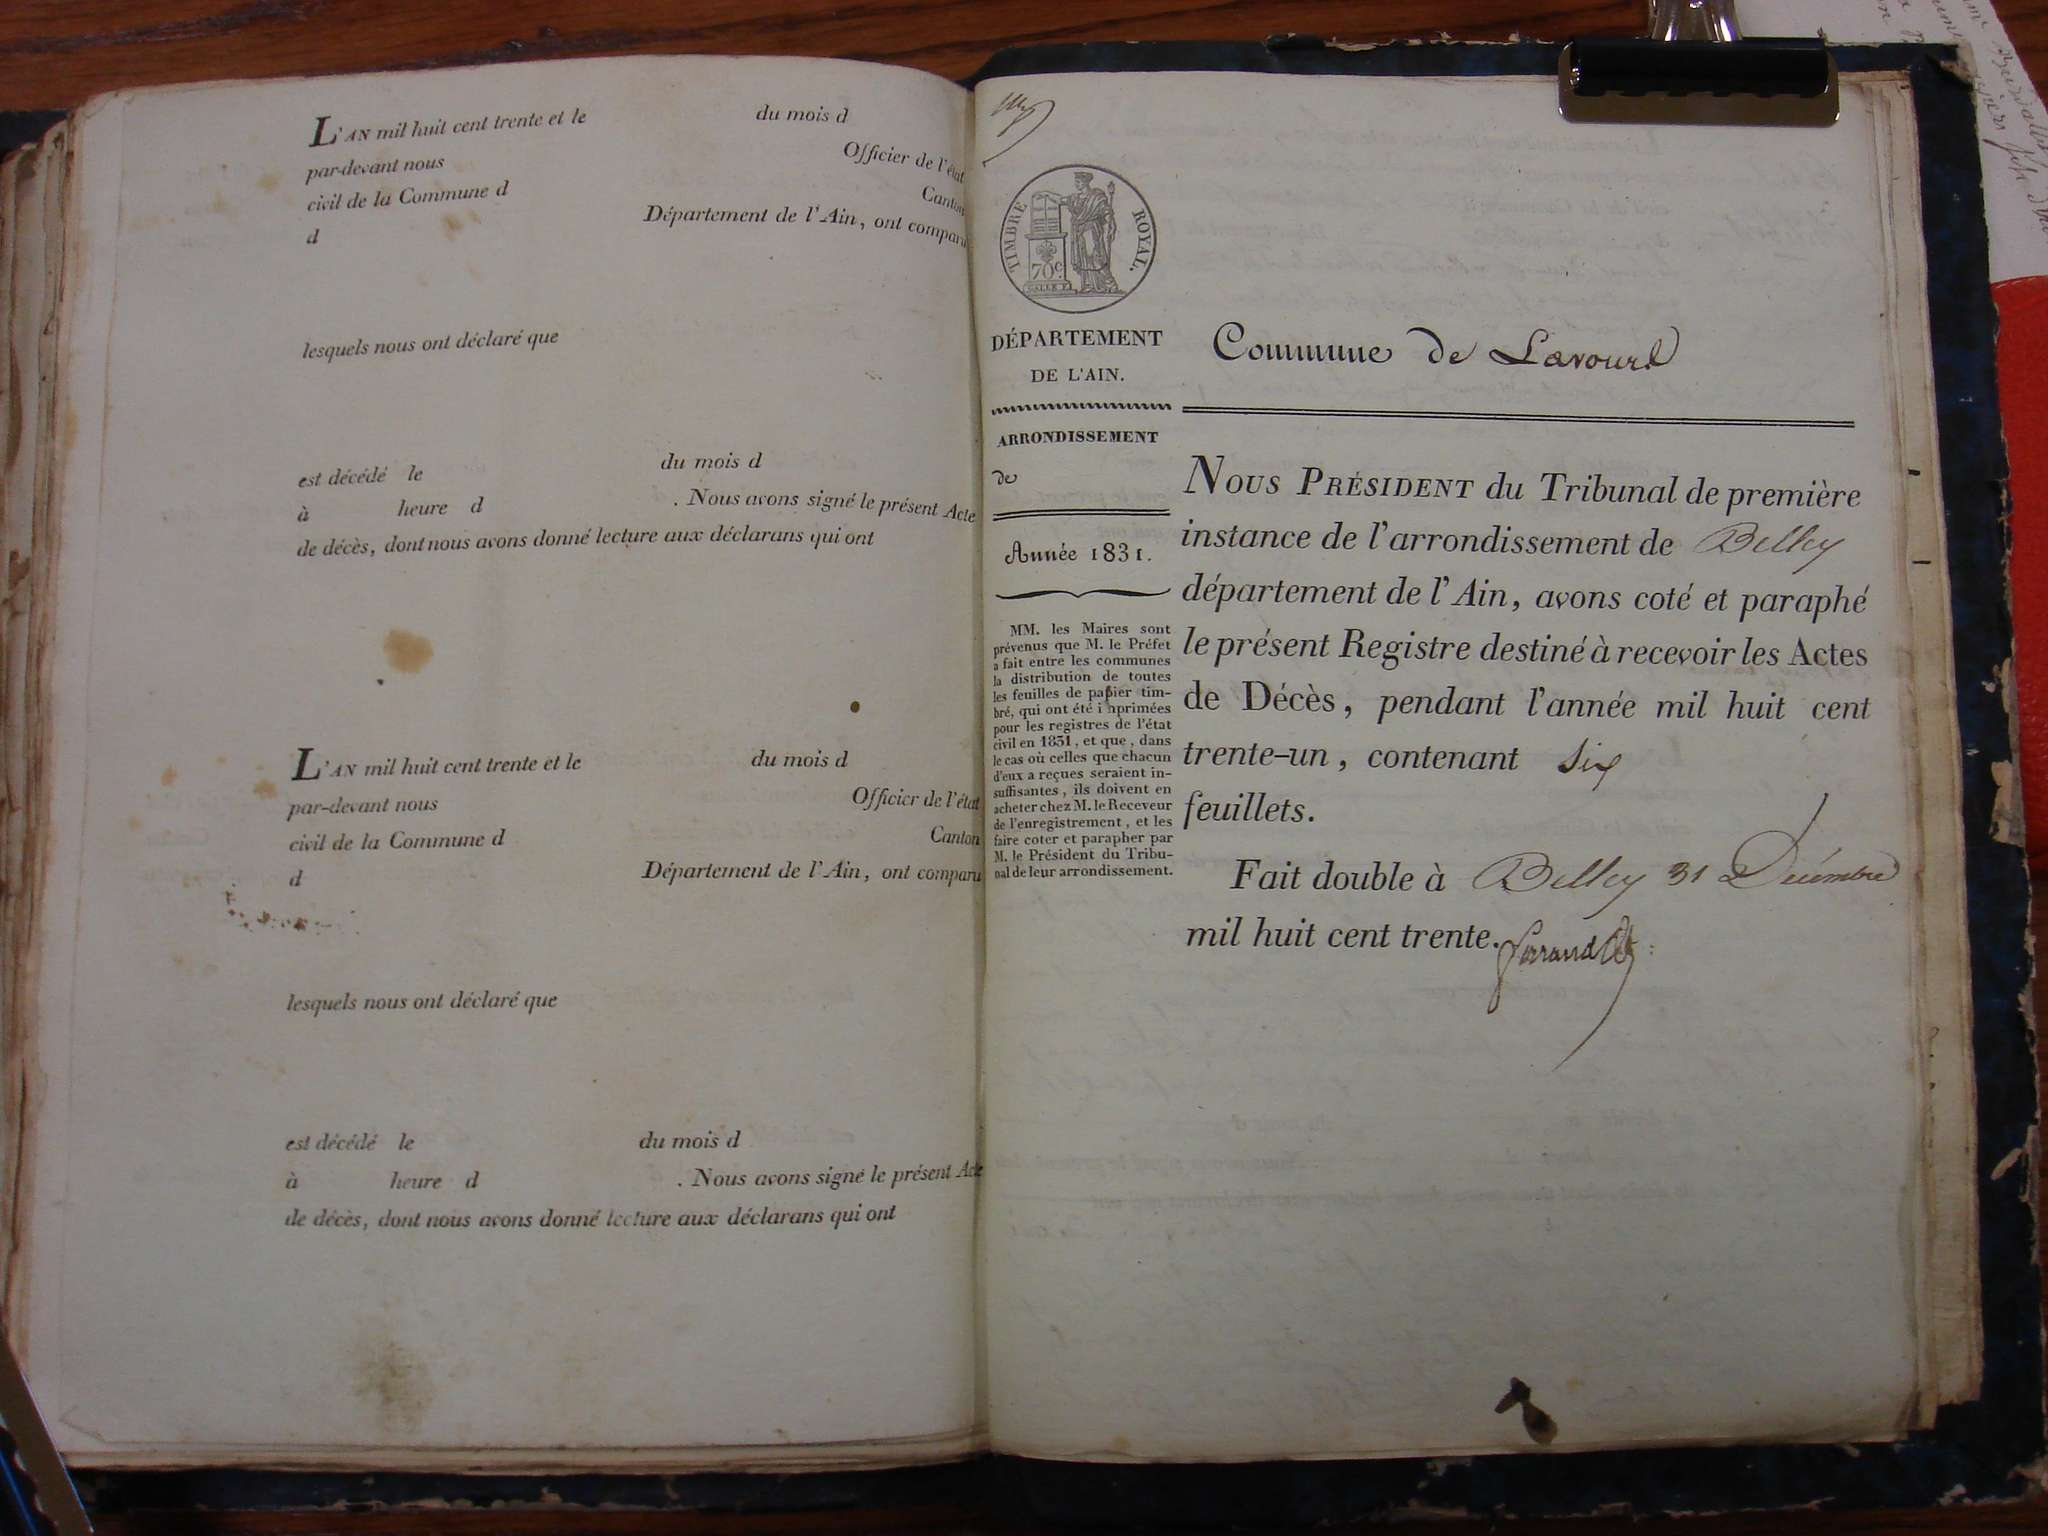 L'AN mil huit cent trente et le du mois d
par-devant nous Officier de l'état
civil de la Commune d Canton
d Département de l'Ain, ont comparu
lesquels nous ont déclaré que
est décédé le du mois d
à heure d . Nous avons signé le présent Acte
de décès, dont nous avons donné lecture aux déclarans qui ont
L'AN mil huit cent trente et le du mois d
par-devant nous Officier de l'état
civil de la Commune d Canton
d Département de l'Ain, ont comparu
lesquels nous ont déclaré que
est décédé le du mois d
à heure d . Nous avons signé le présent Acte
de décès, dont nous avons donné lecture aux déclarans qui ont
TIMBRE ROYAL.
70c
DÉPARTEMENT
DE L'AIN.
ARRONDISSEMENT
de
Année 1831.
MM. les Maires sont
prévenus que M. le Préfet
a fait entre les communes
la distribution de toutes
les feuilles de papier tim-
bré, qui ont été imprimées
pour les registres de l'état
civil en 1831, et que, dans
le cas où celles que chacun
d'eux a reçues seraient in-
suffisantes, ils doivent en
acheter chez M. le Receveur
de l'enregistrement, et les
faire coter et parapher par
M. le Président du Tribu-
nal de leur arrondissement.
Commune de Lavours
NOUS PRÉSIDENT du Tribunal de première
instance de l'arrondissement de Belley
département de l'Ain, avons coté et paraphé
le présent Registre destiné à recevoir les Actes
de Décès, pendant l'année mil huit cent
trente-un, contenant six
feuillets.
Fait double à Belley 31 Décembre
mil huit cent trente.